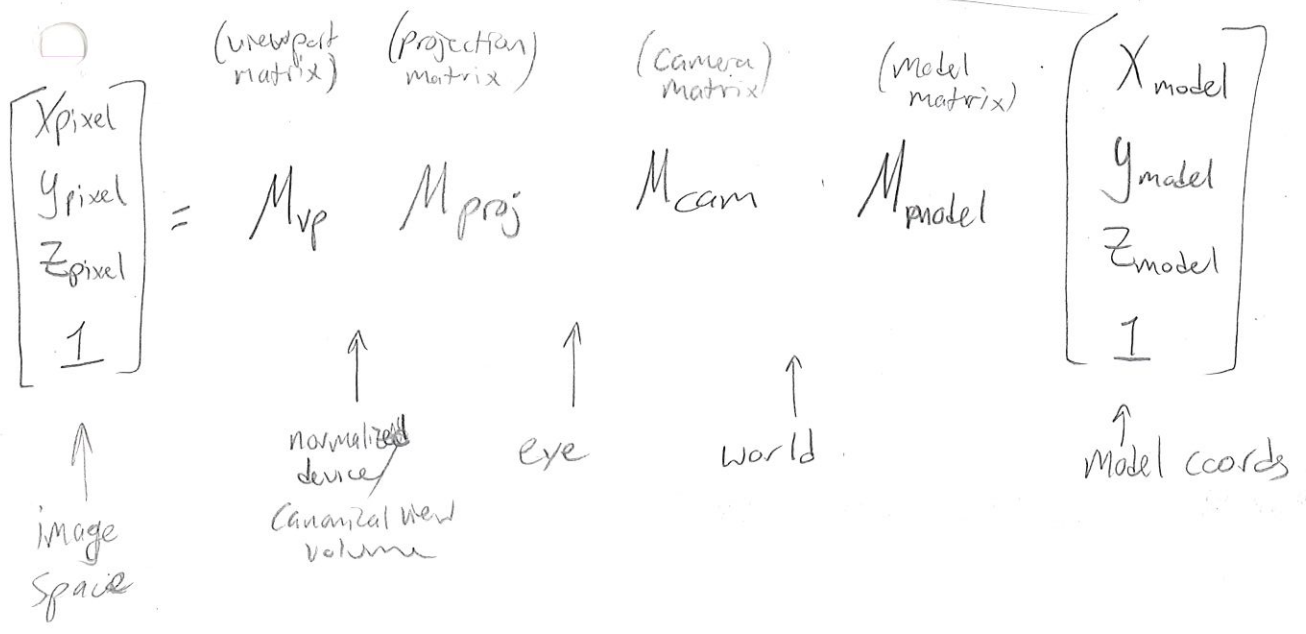 (viewport matrix) (projection matrix) (camera matrix) (model matrix)
[Xpixel Ypixel Zpixel 1] = Mvp Mproj Mcam · Mmodel [Xmodel Ymodel Zmodel 1]
normalized
device/
Canonical view
volume
eye
world
Model coords
image
space